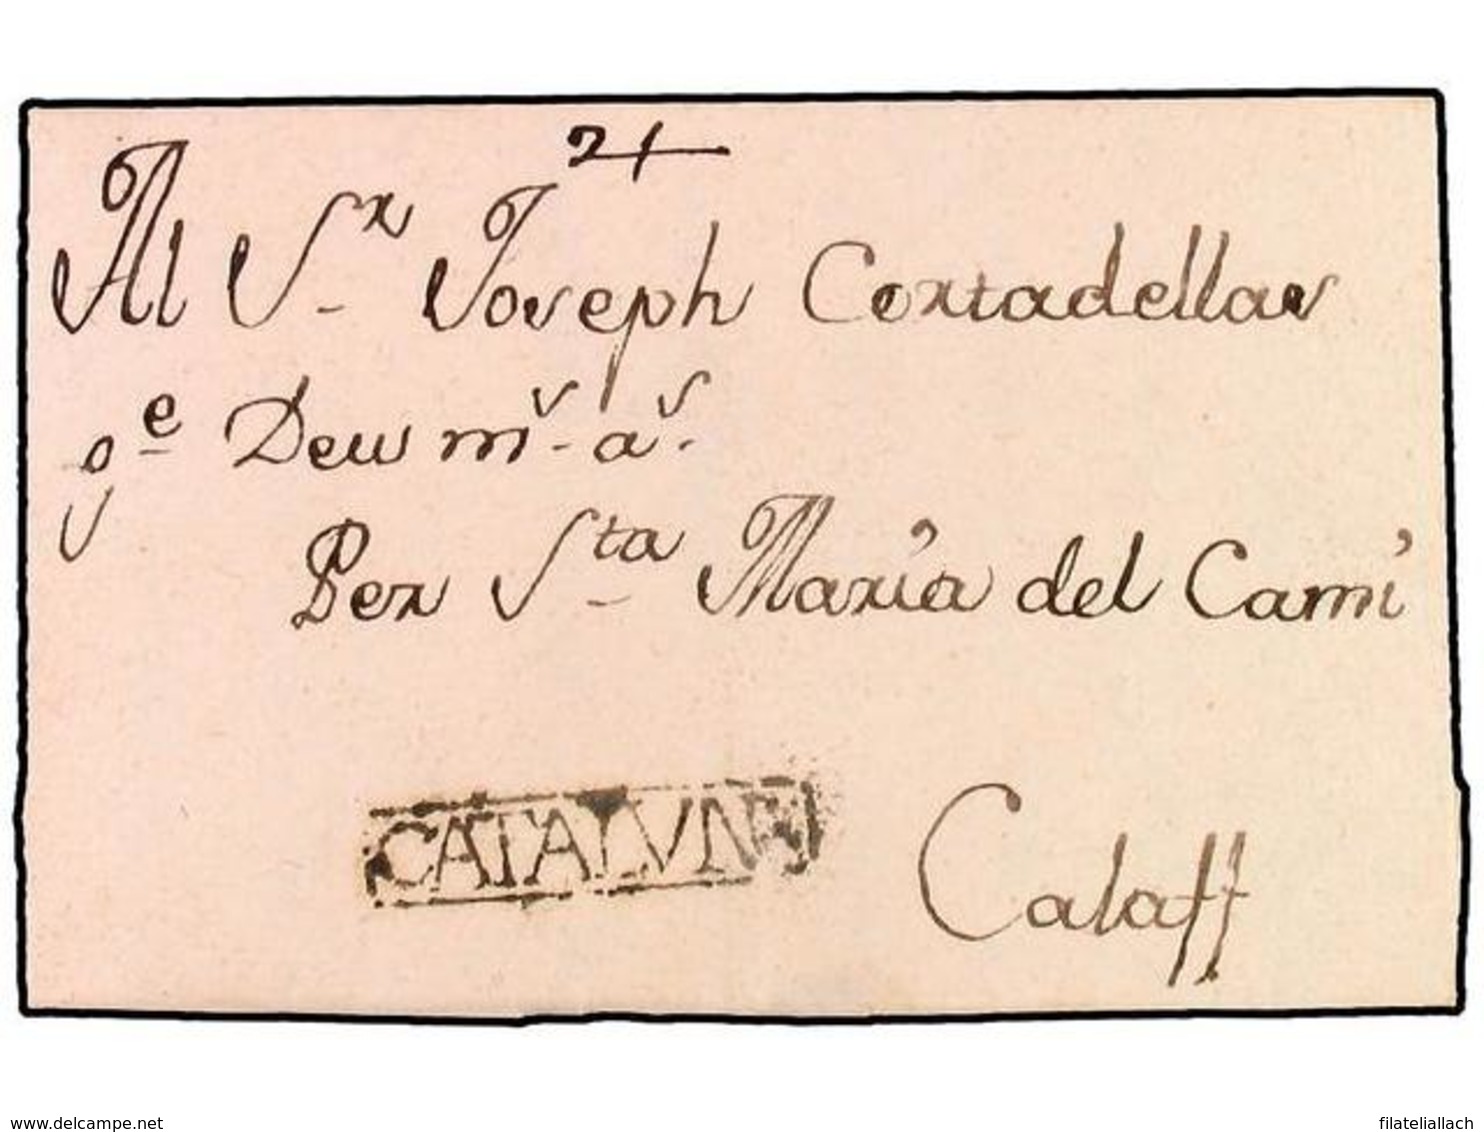 24
Al Sr. Joseph Cortadellas
ge Deu ms. as.
Per Sta. Maria del Cami
CATALUÑA
Calaff
www.delcampe.net
filateliallach